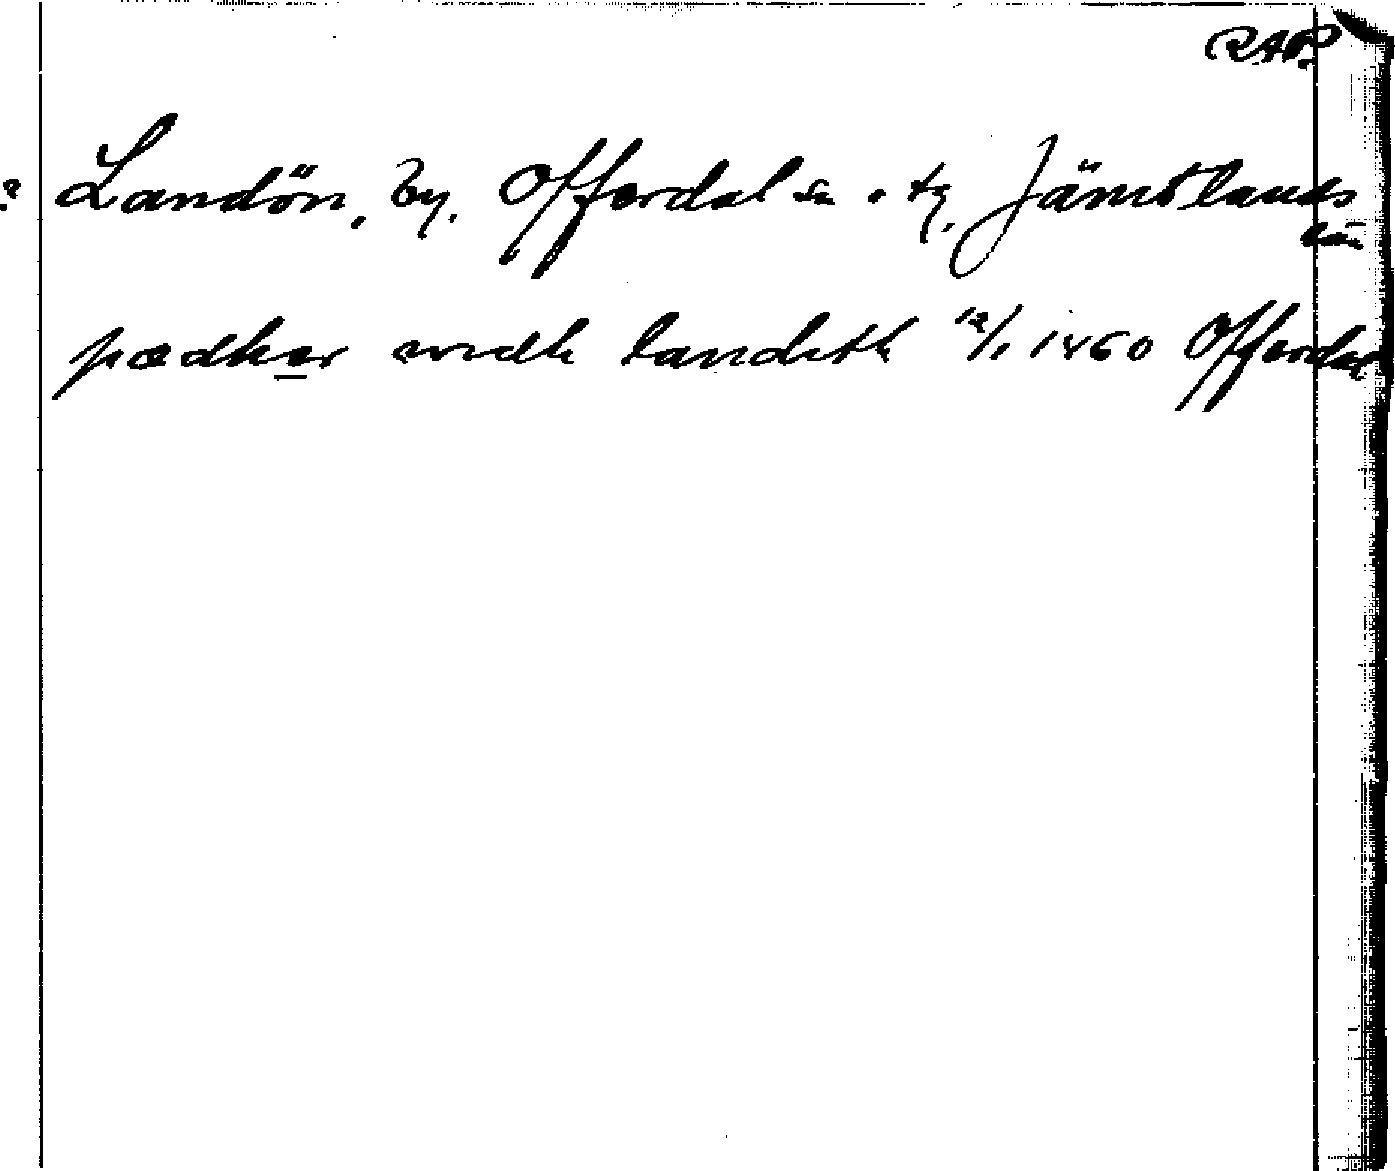 RAP.
? Landön, by. Offerdal sn. o. tg. Jämtlands
län
pædhær widh landith 12/1 1460 Offerdal